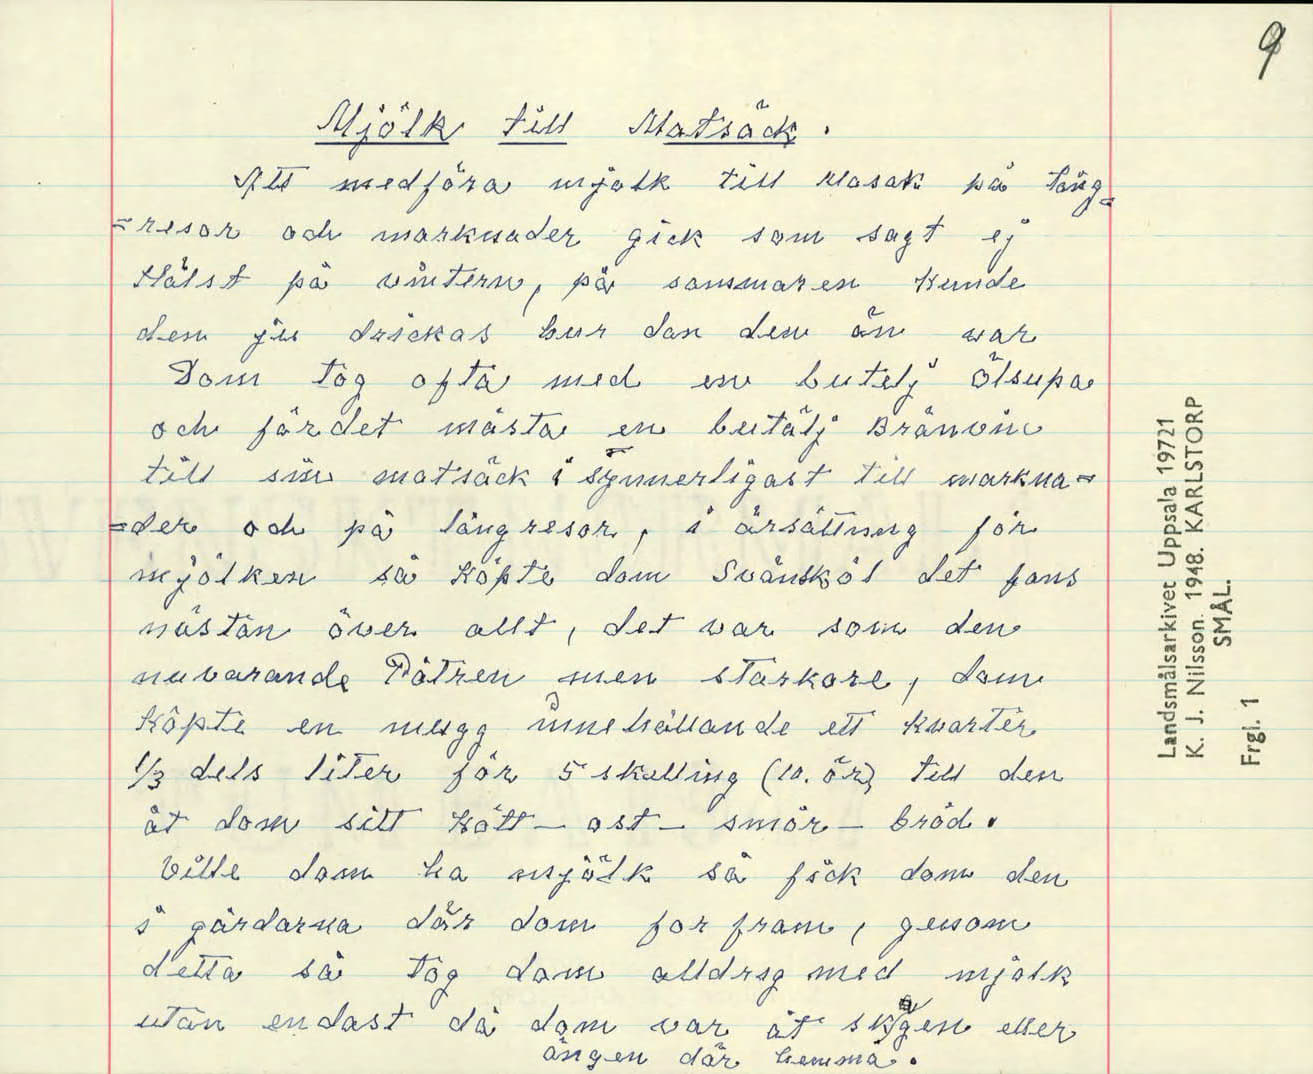 9
Mjölk till Matsäck.
Att medföra mjölk till Masäk på lång-
=resor och marknader gick som sagt ej
Hälst på vintern, på sommaren kunde
den ju drickas hur dan den än var
Dom tog ofta med en butelj ölsupa
och för det mästa en butälj Bränvin
till sin matsäck i synnerligast till markna=
=der och på långresor, i ärsättning för
mjölken så Köpte dom Svänsköl det fans
nästan över allt, det var som den
nuvarande Pötren men starkare, dom
Köpte en mugg innehållande ett kvarter
1/3 dels liter för 5 skilling (10. ör) till den
åt dom sitt Kött - ost - smör - bröd.
Ville dom ha mjölk så fick dom den
i gårdarna där dom for fram, genom
detta så tog dom alldrig med mjölk
utan endast då dom var åt skogen eller
ängen där hemma.
Landsmålsarkivet Uppsala 19721
K. J. Nilsson. 1948. KARLSTORP
SMÅL.
Frgl. 1